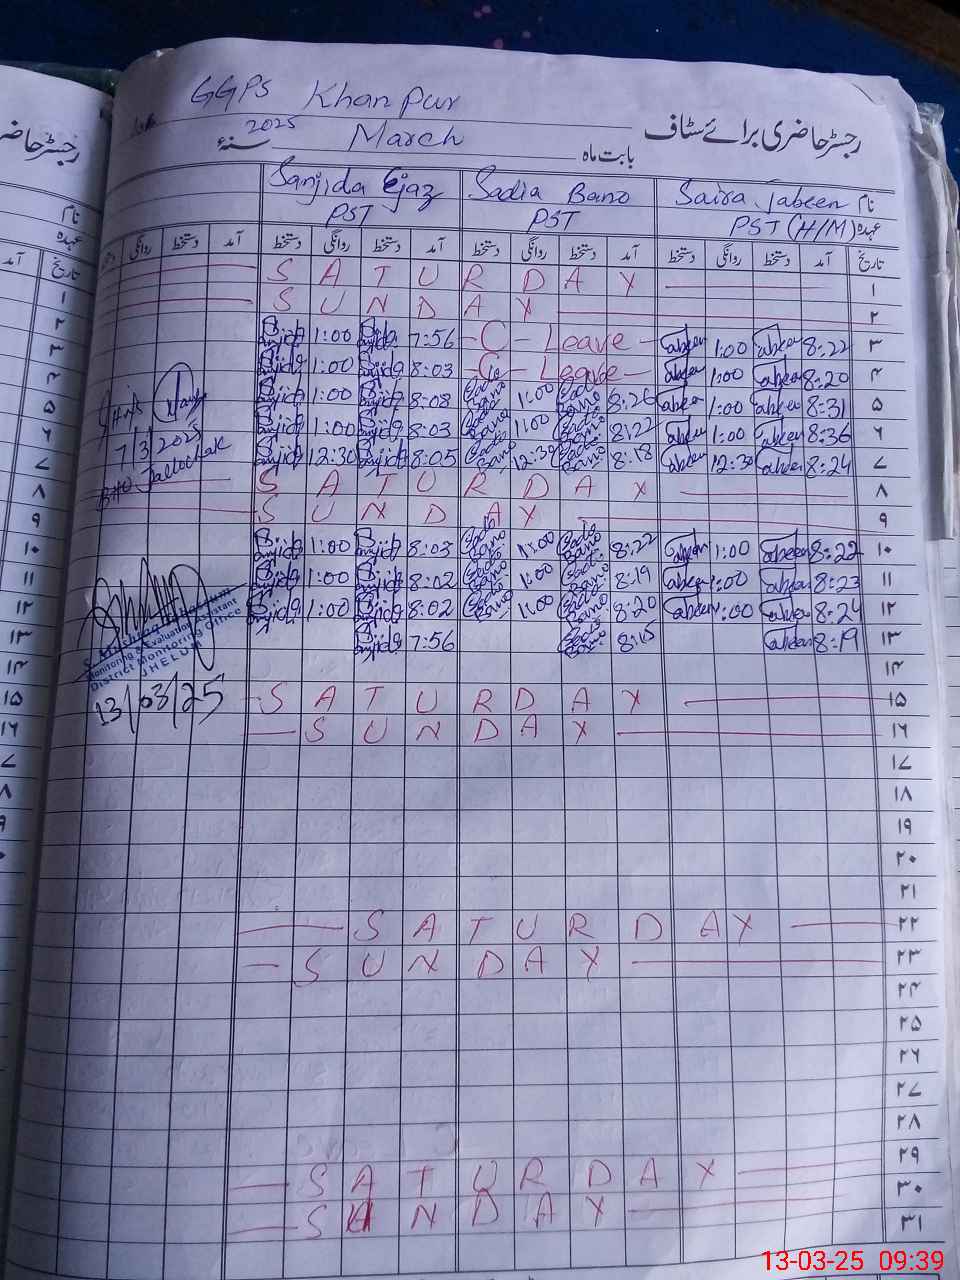 GGPS Khanpur
رجسٹر حاضری برائے سٹاف
بابت ماہ March سنہء 2025
نام Saira Jabeen Sadia Bano Sanjida Ejaz
عہدہ PST (H/M) PST PST
تاریخ آمد دستخط روانگی دستخط آمد دستخط روانگی دستخط آمد دستخط روانگی دستخط آمد دستخط روانگی
۱ S A T U R D A Y
۲ S U N D A Y
۳ 8:22 Jabeen 1:00 Jabeen C - Leave 7:56 1:00
۴ 8:20 Jabeen 1:00 Jabeen C - Leave 8:03 1:00
۵ 8:31 Jabeen 1:00 Jabeen 8:26 Sadia Bano 1:00 Sadia Bano 8:08 1:00
۶ 8:36 Jabeen 1:00 Jabeen 8:22 Sadia Bano 1:00 Sadia Bano 8:03 1:00
۷ 8:24 Jabeen 12:30 Jabeen 8:18 Sadia Bano 12:30 Sadia Bano 8:05 12:30
7/3/2025
۸ S A T U R D A Y
۹ S U N D A Y
۱۰ 8:22 Jabeen 1:00 Jabeen 8:22 Sadia Bano 1:00 Sadia Bano 8:03 1:00
۱۱ 8:23 Jabeen 1:00 Jabeen 8:19 Sadia Bano 1:00 Sadia Bano 8:02 1:00
۱۲ 8:24 Jabeen 1:00 Jabeen 8:20 Sadia Bano 1:00 Sadia Bano 8:02 1:00
۱۳ 8:19 Jabeen 8:15 Sadia Bano 7:56
Monitoring & Evaluation Assistant
District Monitoring Office
JHELUM
13/03/25
۱۴
۱۵ S A T U R D A Y
۱۶ S U N D A Y
۱۷
۱۸
۱۹
۲۰
۲۱
۲۲ S A T U R D A Y
۲۳ S U N D A Y
۲۴
۲۵
۲۶
۲۷
۲۸
۲۹ S A T U R D A Y
۳۰ S U N D A Y
۳۱
13-03-25 09:39